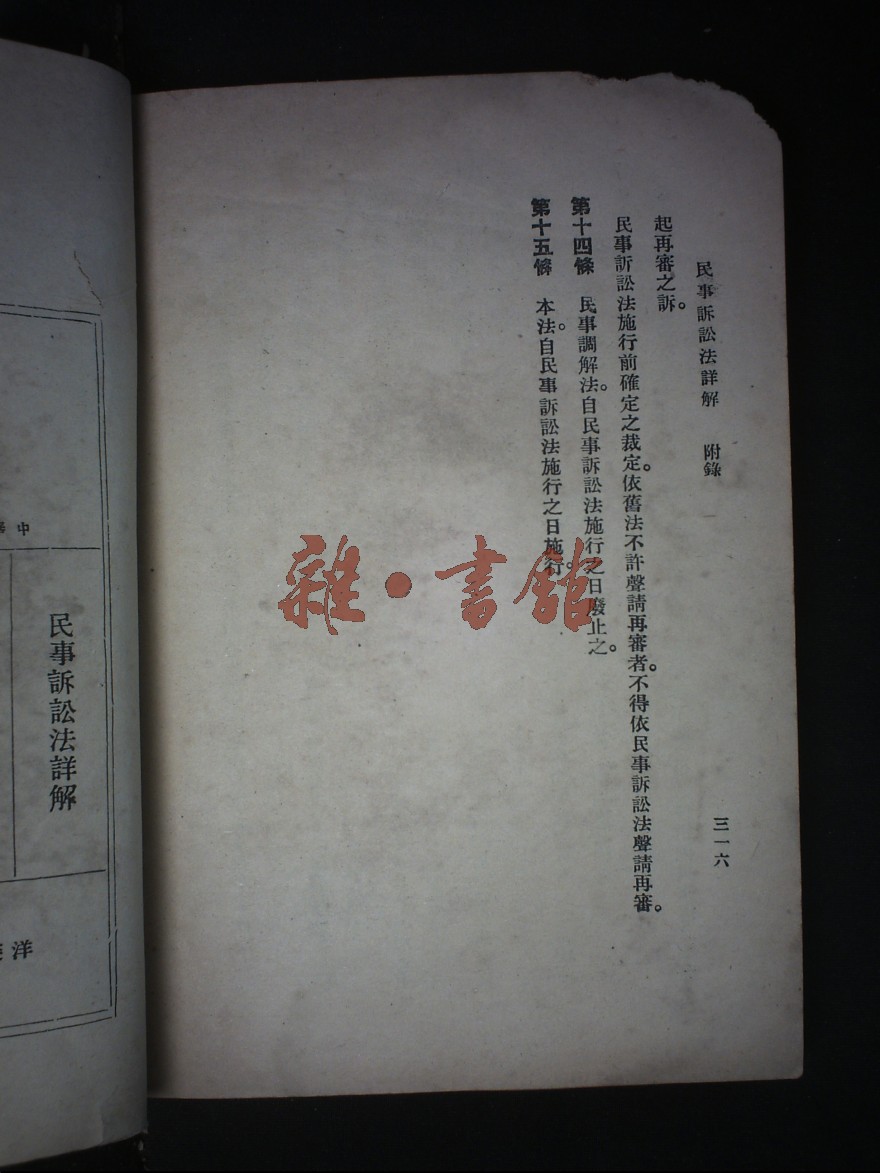 民事訴訟法詳解　附錄
三一六
起再審之訴。
民事訴訟法施行前確定之裁定。依舊法不許聲請再審者。不得依民事訴訟法聲請再審。
第十四條　民事調解法。自民事訴訟法施行之日廢止之。
第十五條　本法。自民事訴訟法施行之日施行。
雜·書館
民事訴訟法詳解
中
洋